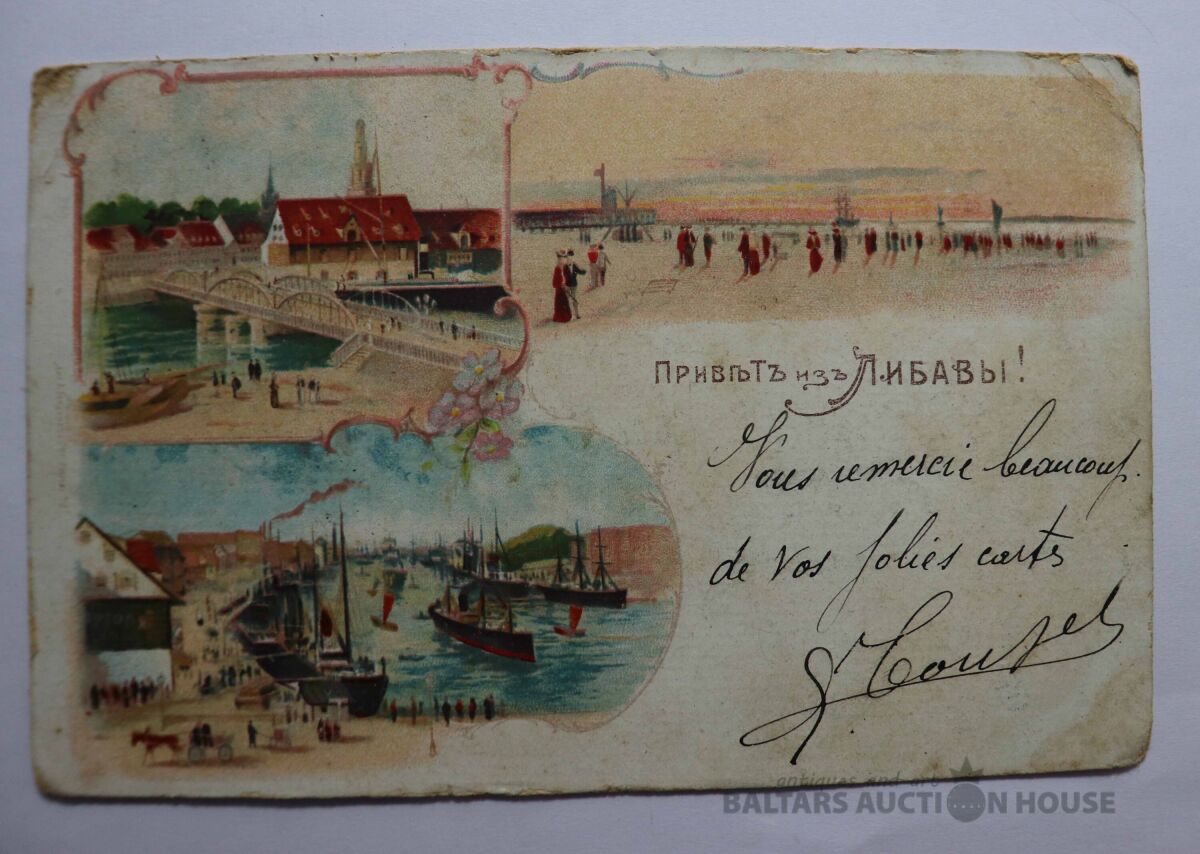 Привѣтъ изъ Либавы!
Vous remercie beaucoup.
de vos jolies cartes
antiques and art
BALTARS AUCTION HOUSE